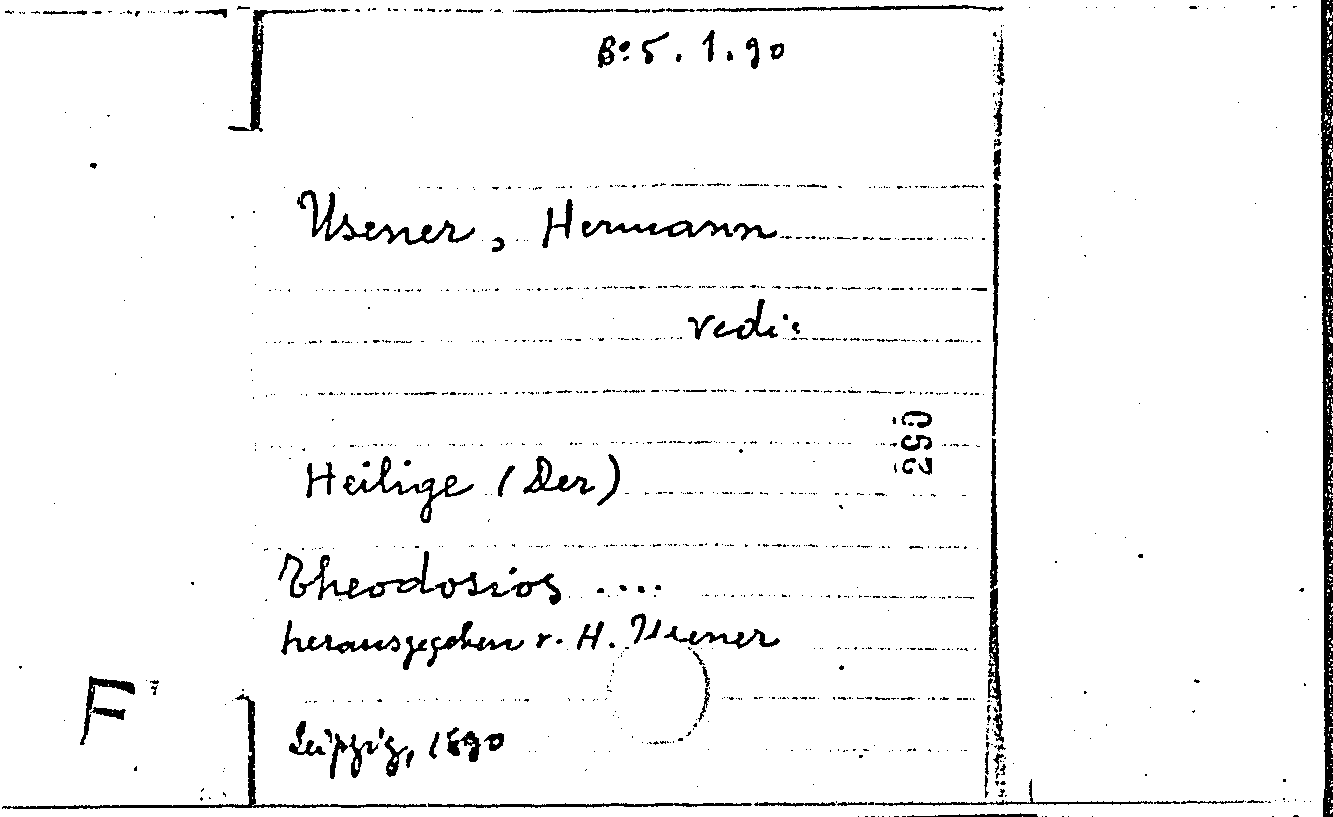 Bo 5. 1. 90
Usener, Hermann
vedi:
290
Heilige (Der)
Theodosios ....
herausgegeben v. H. Usener
F
Leipzig, 1890